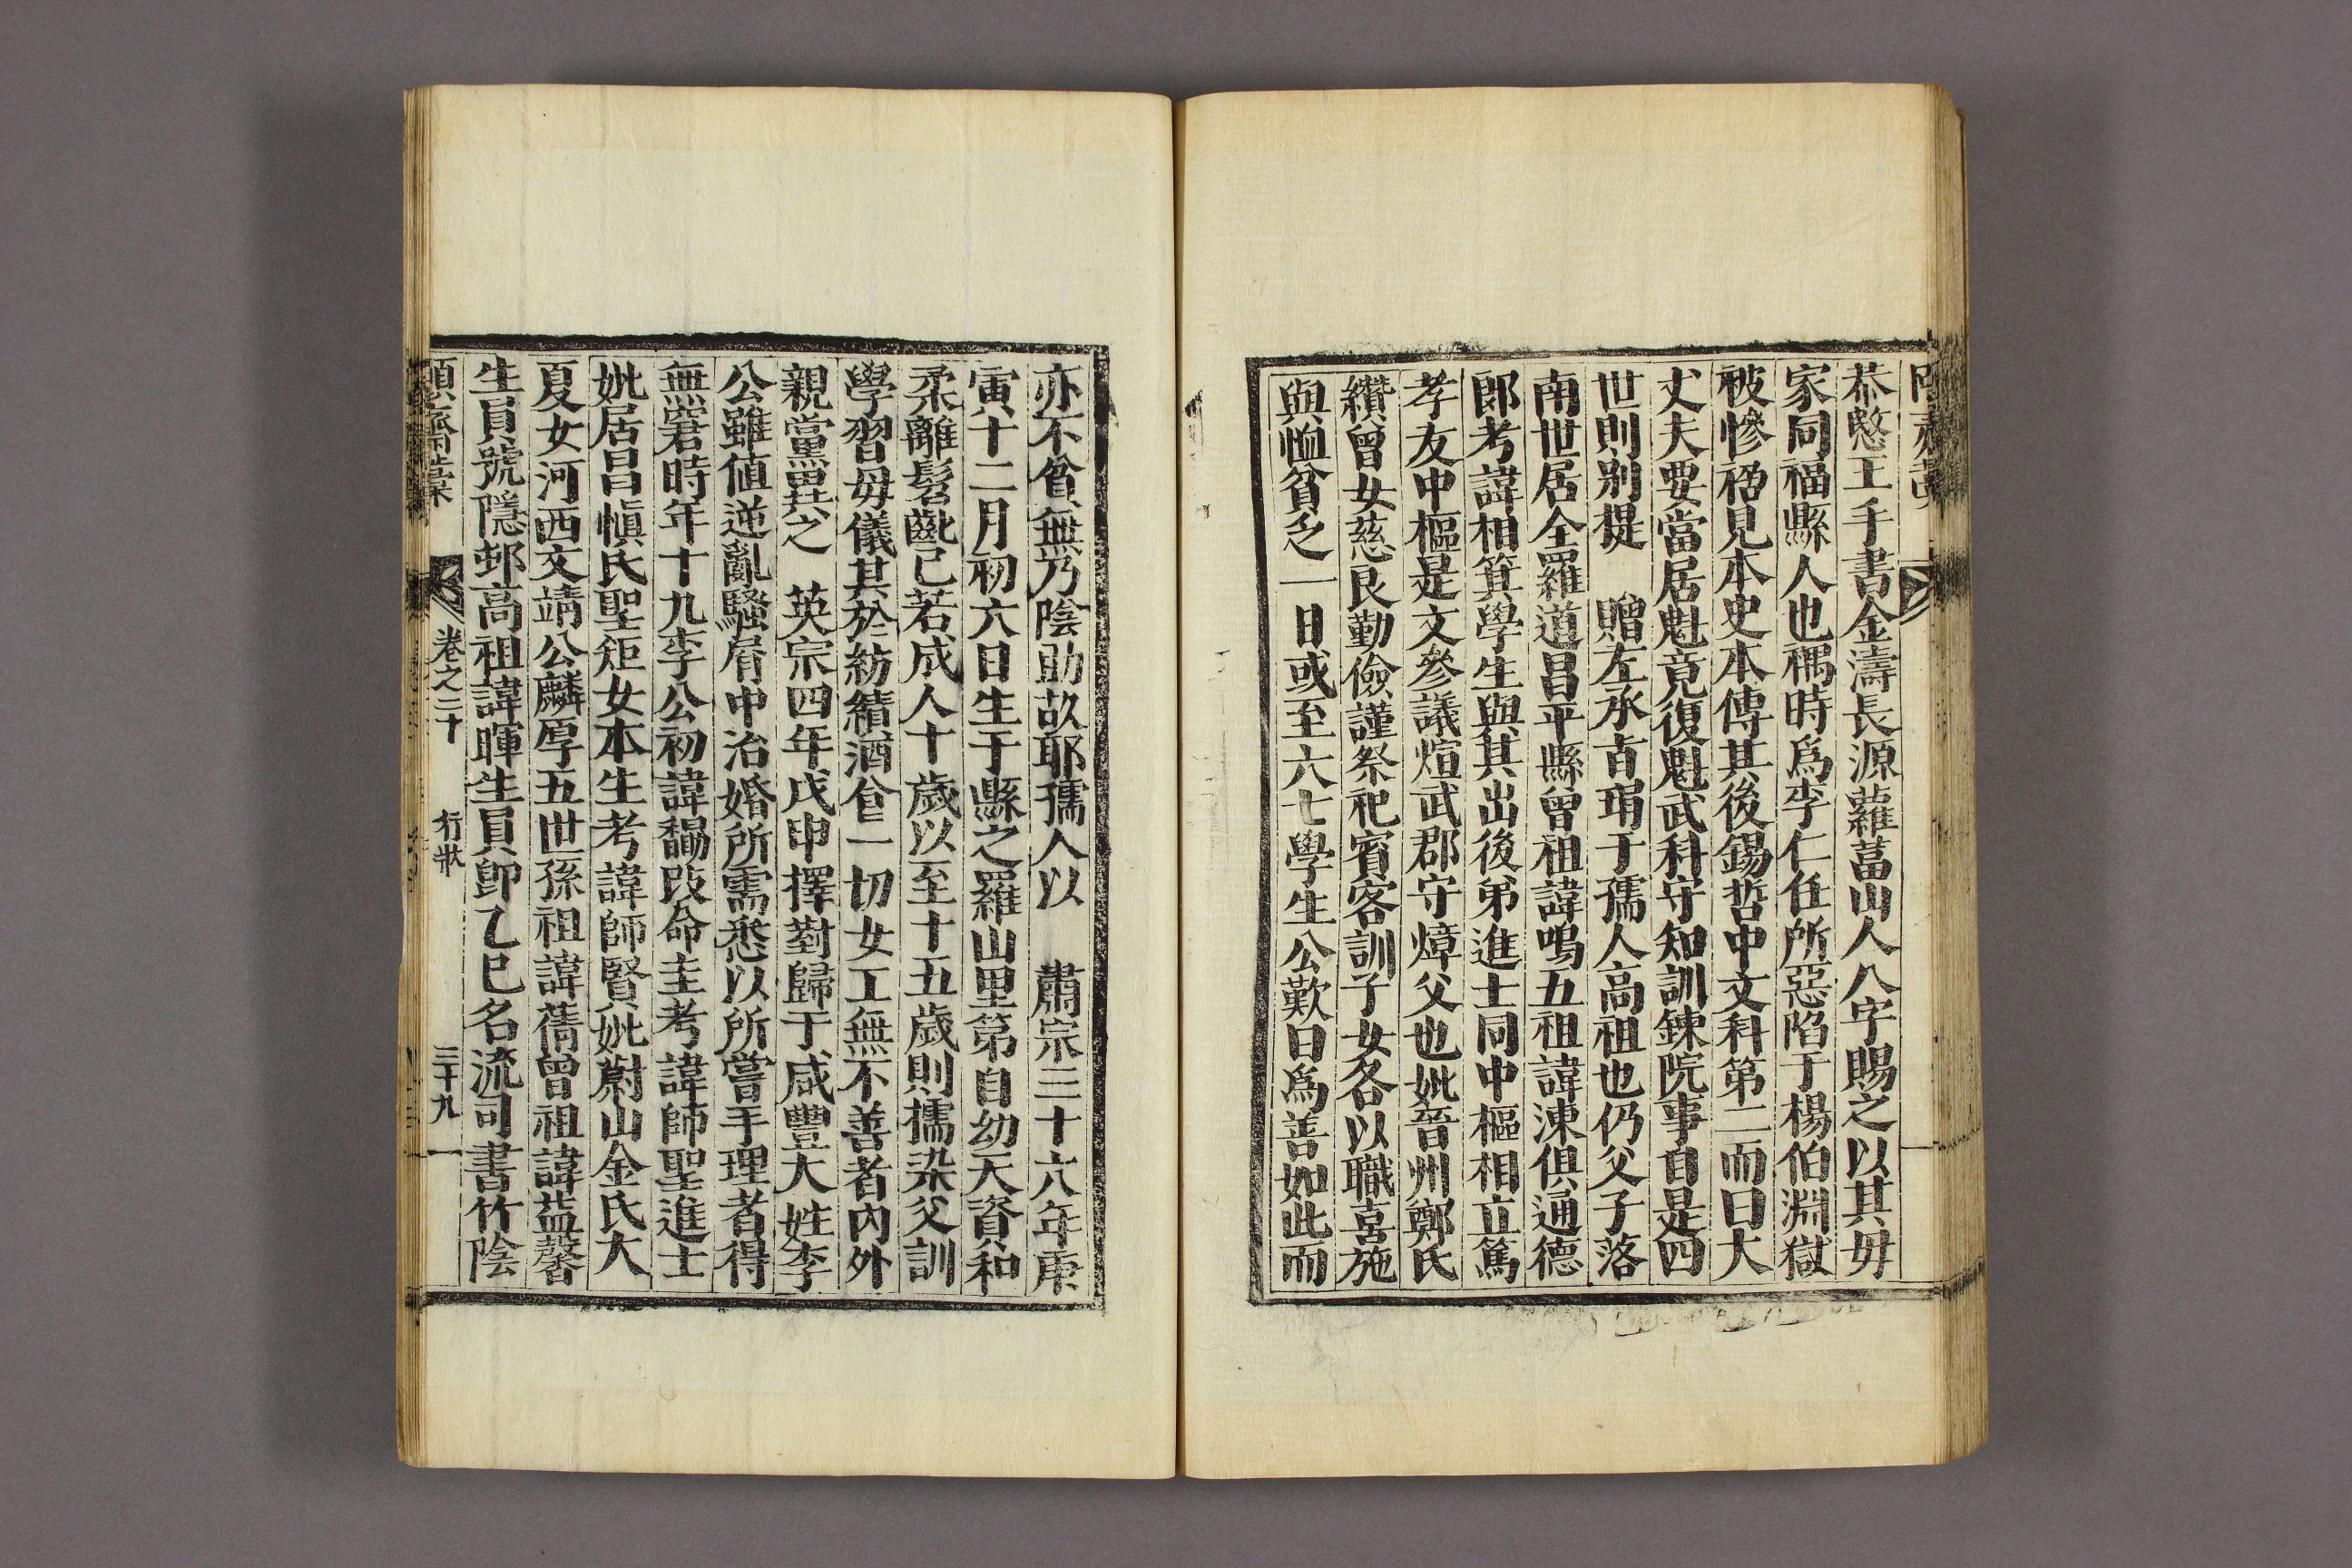 恭愍王手書金濤長源蘿葍山人八字賜之以其毋
家同福縣人也禑時爲李仁任所惡陷于楊伯淵獄
被慘禍見本史本傳其後錫哲中文科第二而曰大
丈夫要當居魁竟復魁武科守知訓鍊院事自是四
世則別提 贈左承旨琄于孺人高祖也仍父子落
南世居全羅道昌平縣曾祖諱鳴五祖諱涷俱通德
郎考諱相箕學生與其出後弟進士同中樞相立篤
孝友中樞是文參議煊武郡守煒父也妣晉州鄭氏
纘曾女慈良勤儉謹祭祀賓客訓子女各以職喜施
與恤貧乏一日或至六七學生公歎曰爲善如此而
亦不貧無乃陰助故耶孺人以 肅宗三十六年庚
寅十二月初六日生于縣之羅山里第自幼天資和
柔離髫齔已若成人十歲以至十五歲則擩染父訓
學習毋儀其於紡績酒食一切女工無不善者內外
親黨異之 英宗四年戊申擇對歸于咸豐大姓李
公雖値逆亂騷屑中治婚所需悉以所嘗手理者得
無窘時年十九李公初諱馧改命圭考諱師聖進士
妣居昌愼氏聖矩女本生考諱師賢妣蔚山金氏大
夏女河西文靖公麟厚五世孫祖諱蒨曾祖諱藎馨
生員號隱邨高祖諱暉生員卽乙巳名流司書竹陰
頤齋藁 卷之二十 行狀 三十九